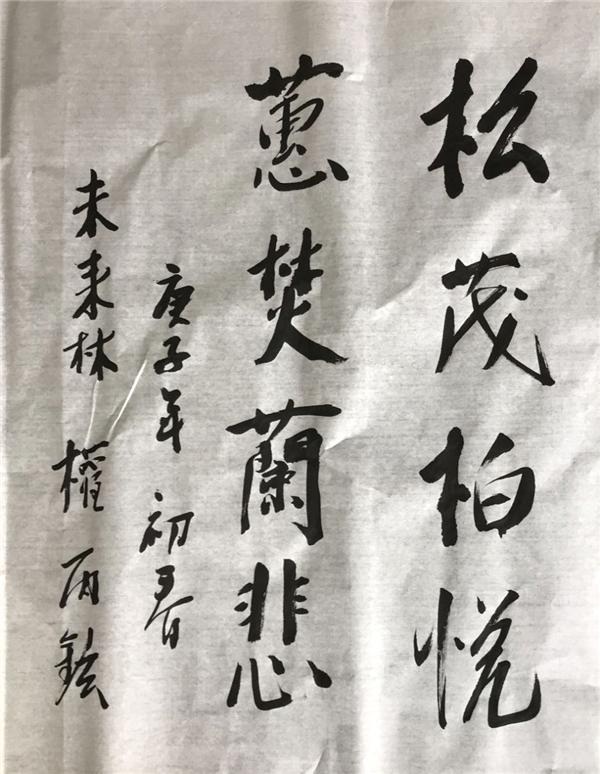 松茂柏悅
蕙焚蘭悲
庚子年 初春
未来林 權丙鉉